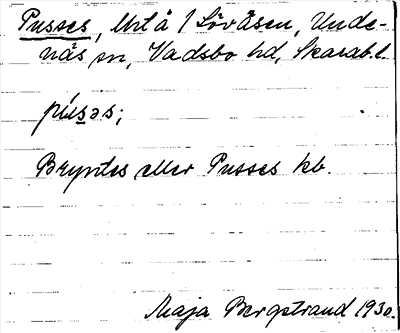 Pusses, Urlå / Lövåsen, Unde-
näs sn, Vadsbo hd, Skarab.l.
púsəs;
Bryntes eller Pusses kb.
Maja Bergstrand 1930.